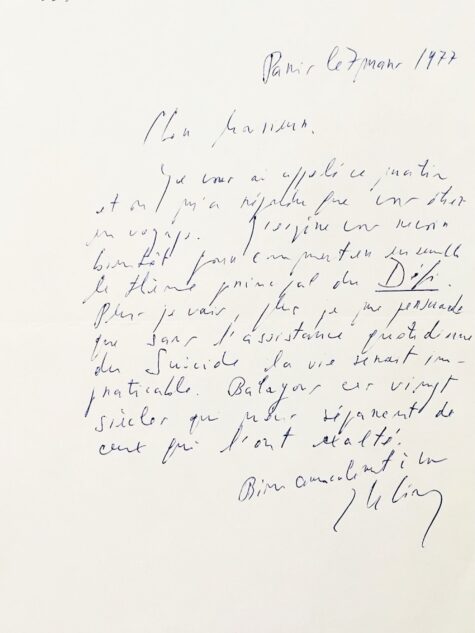 Paris le 7 mars 1977
Cher Monsieur,
Je vous ai appelé ce matin
et on m'a répondu que vous étiez
en voyage. J'espère vous revoir
bientôt pour commenter ensemble
le thème principal du Défi.
Plus je vais, plus je me persuade
que sans l'assistance quotidienne
du Suicide la vie serait im-
praticable. Balayons ces vingt
siècles qui nous séparent de
ceux qui l'ont exalté.
Bien amicalement à vous